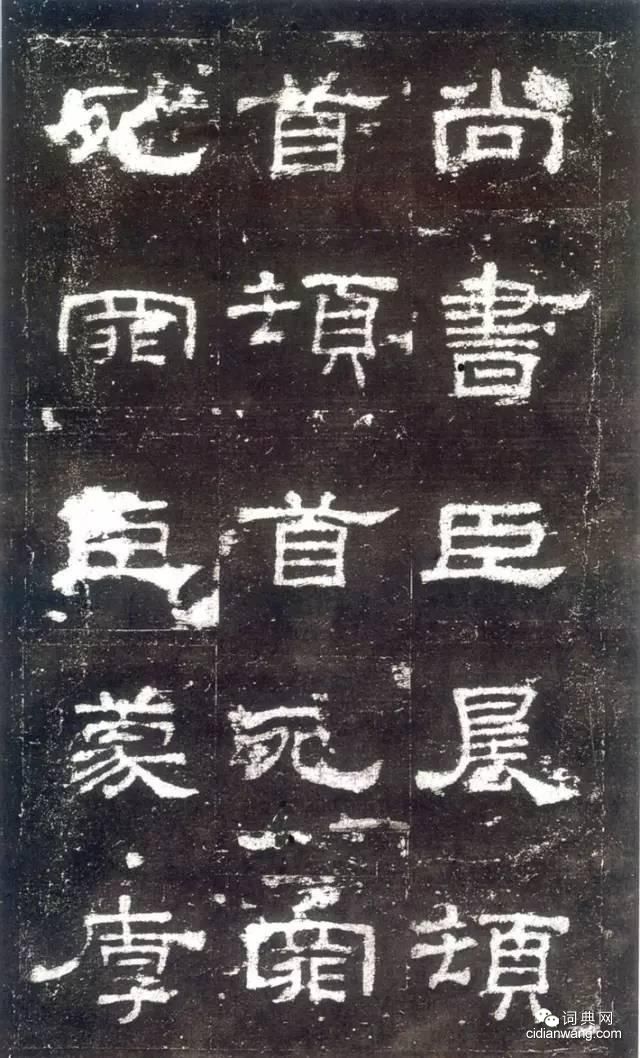 尚書臣晨頓
首頓首死罪
死罪臣蒙厚
词典网
cidianwang.com